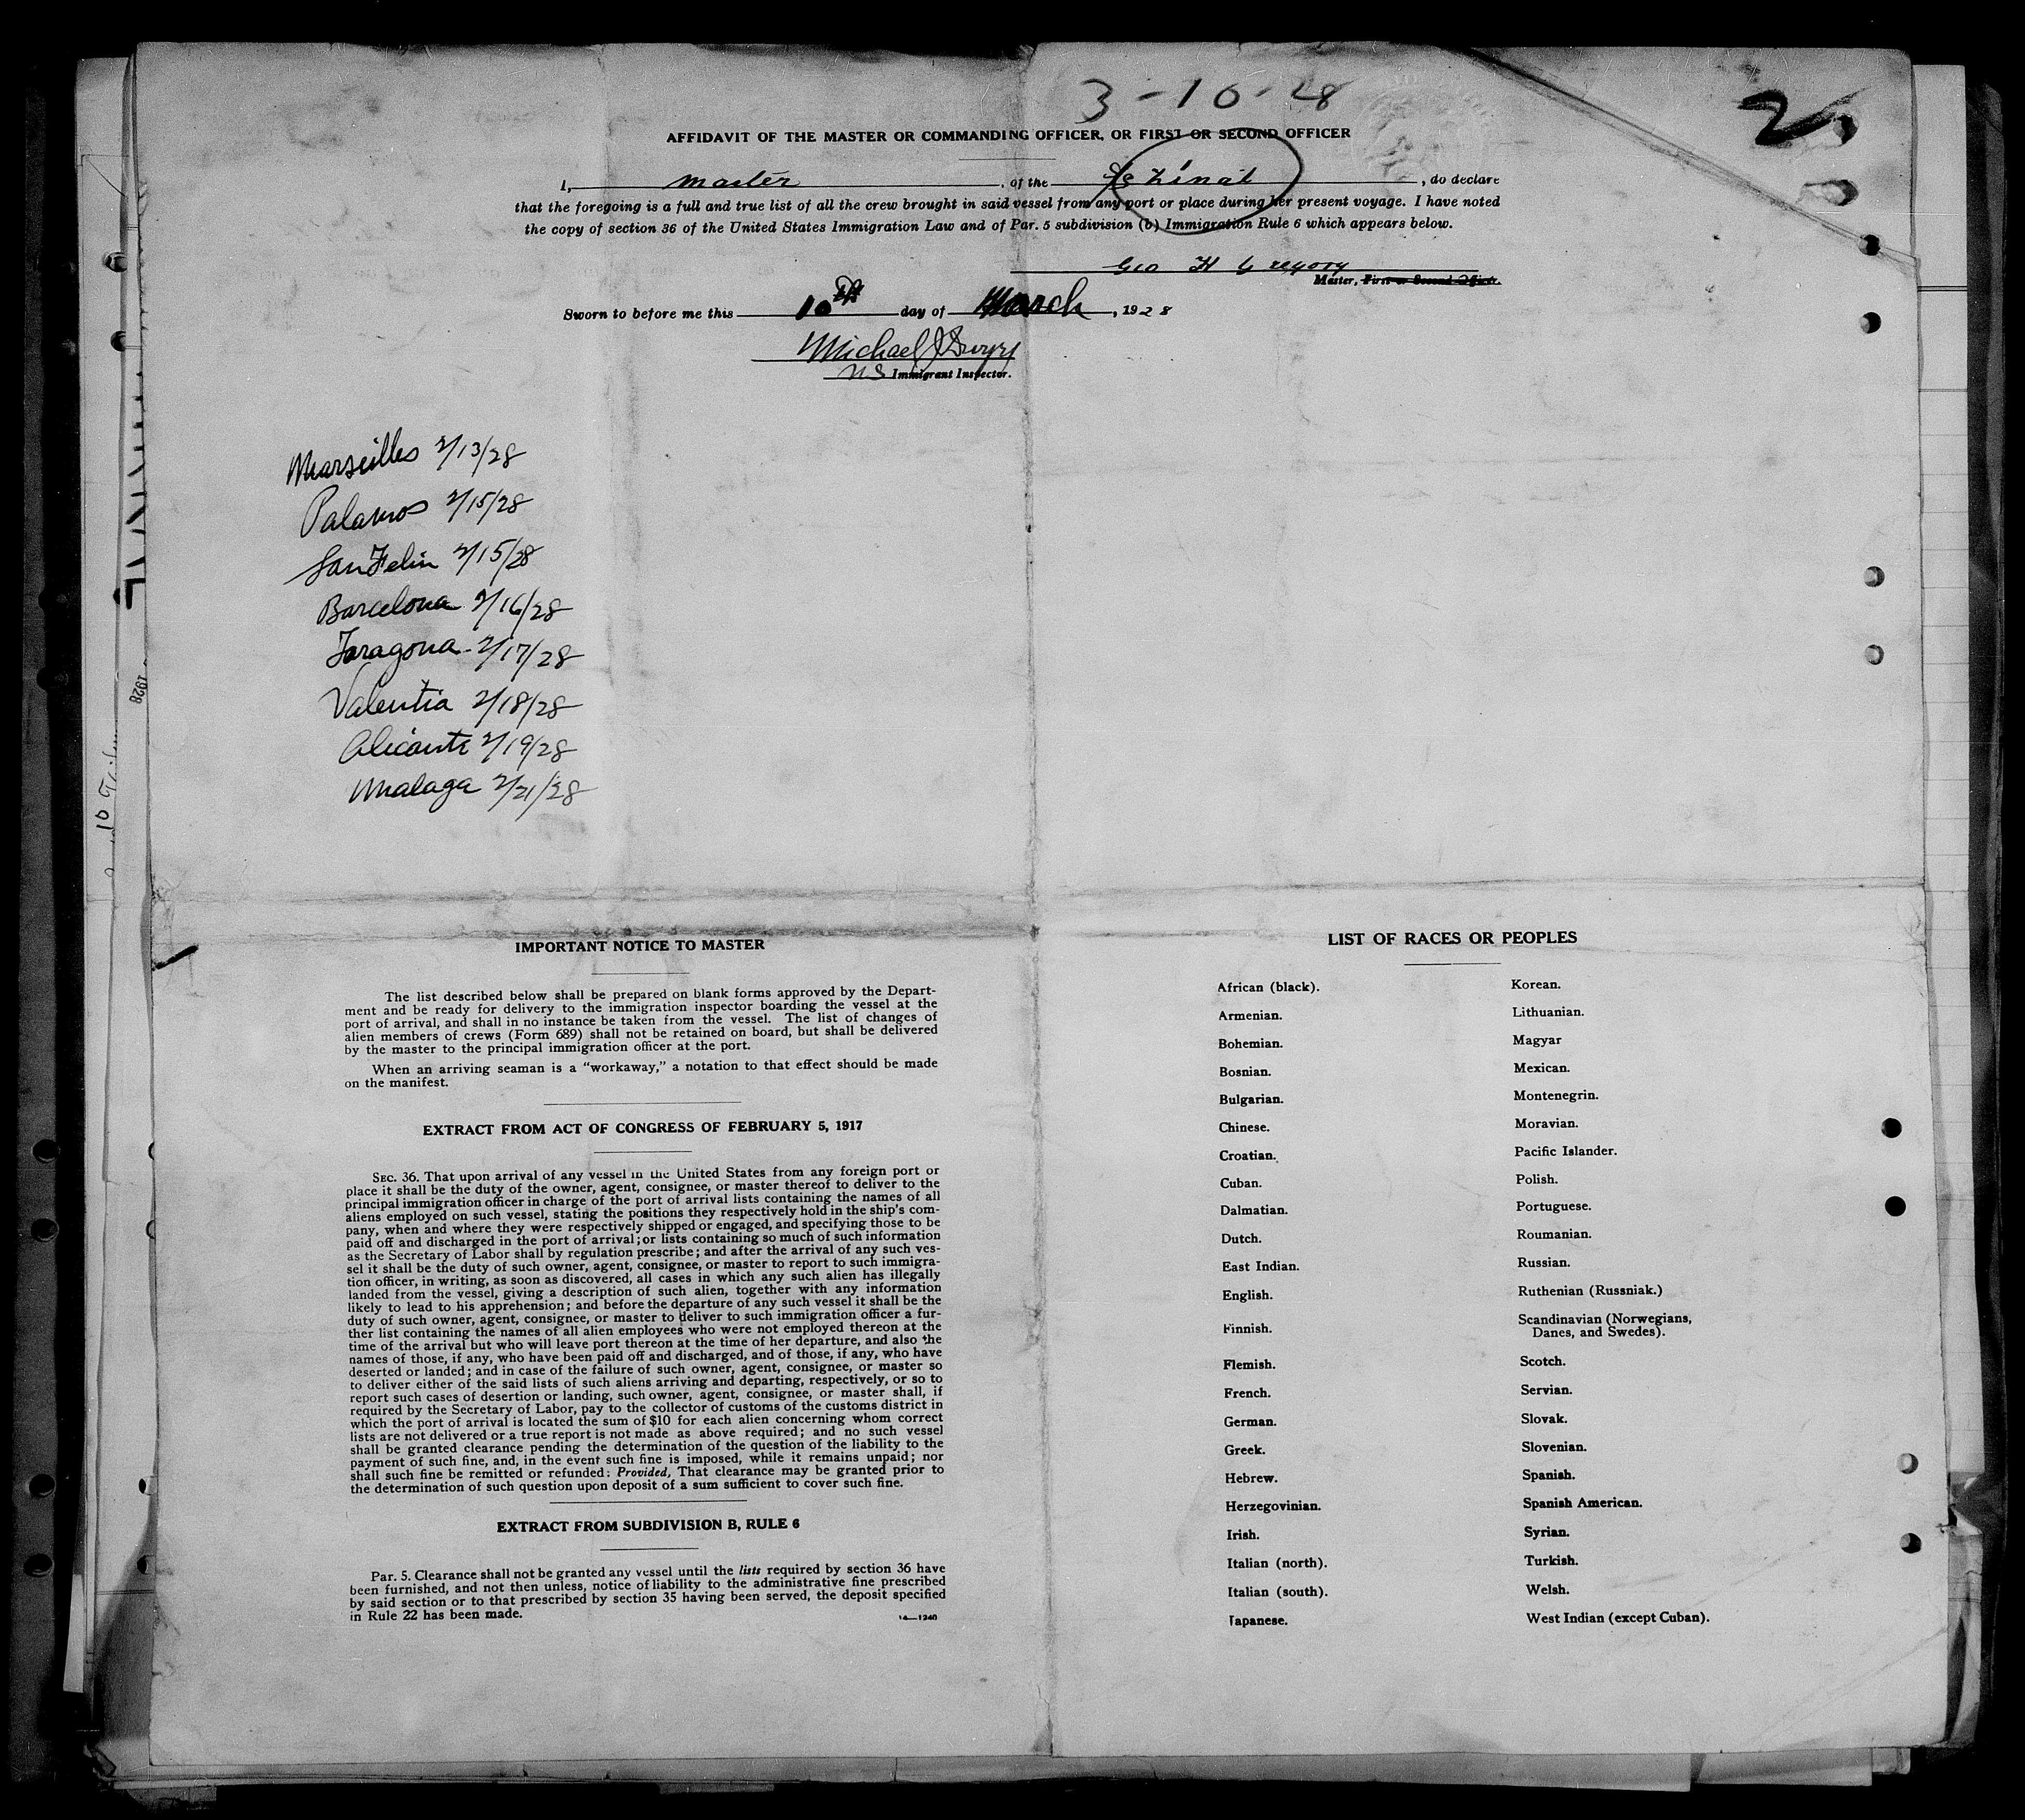 3-10-28
2
AFFIDAVIT OF THE MASTER OR COMMANDING OFFICER, OR FIRST OR SECOND OFFICER
I, master, of the SS Zinal, do declare
that the foregoing is a full and true list of all the crew brought in said vessel from any port or place during her present voyage. I have noted
the copy of section 36 of the United States Immigration Law and of Par. 5 subdivision (b) Immigration Rule 6 which appears below.
Geo H Gregory
Master, First or Second Officer.
Sworn to before me this 10th day of March, 1928
Michael J
US Immigrant Inspector.
Marseilles 2/13/28
Palamos 2/15/28
San Feliu 2/15/28
Barcelona 2/16/28
Taragona - 2/17/28
Valentia 2/18/28
Alicante 2/19/28
Malaga 2/21/28
1928
IMPORTANT NOTICE TO MASTER
The list described below shall be prepared on blank forms approved by the Depart-
ment and be ready for delivery to the immigration inspector boarding the vessel at the
port of arrival, and shall in no instance be taken from the vessel. The list of changes of
alien members of crews (Form 689) shall not be retained on board, but shall be delivered
by the master to the principal immigration officer at the port.
When an arriving seaman is a "workaway," a notation to that effect should be made
on the manifest.
EXTRACT FROM ACT OF CONGRESS OF FEBRUARY 5, 1917
SEC. 36. That upon arrival of any vessel in the United States from any foreign port or
place it shall be the duty of the owner, agent, consignee, or master thereof to deliver to the
principal immigration officer in charge of the port of arrival lists containing the names of all
aliens employed on such vessel, stating the positions they respectively hold in the ship's com-
pany, when and where they were respectively shipped or engaged, and specifying those to be
paid off and discharged in the port of arrival; or lists containing so much of such information
as the Secretary of Labor shall by regulation prescribe; and after the arrival of any such ves-
sel it shall be the duty of such owner, agent, consignee, or master to report to such immigra-
tion officer, in writing, as soon as discovered, all cases in which any such alien has illegally
landed from the vessel, giving a description of such alien, together with any information
likely to lead to his apprehension; and before the departure of any such vessel it shall be the
duty of such owner, agent, consignee, or master to deliver to such immigration officer a fur-
ther list containing the names of all alien employees who were not employed thereon at the
time of the arrival but who will leave port thereon at the time of her departure, and also the
names of those, if any, who have been paid off and discharged, and of those, if any, who have
deserted or landed; and in case of the failure of such owner, agent, consignee, or master so
to deliver either of the said lists of such aliens arriving and departing, respectively, or so to
report such cases of desertion or landing, such owner, agent, consignee, or master shall, if
required by the Secretary of Labor, pay to the collector of customs of the customs district in
which the port of arrival is located the sum of $10 for each alien concerning whom correct
lists are not delivered or a true report is not made as above required; and no such vessel
shall be granted clearance pending the determination of the question of the liability to the
payment of such fine, and, in the event such fine is imposed, while it remains unpaid; nor
shall such fine be remitted or refunded: Provided, That clearance may be granted prior to
the determination of such question upon deposit of a sum sufficient to cover such fine.
EXTRACT FROM SUBDIVISION B, RULE 6
Par. 5. Clearance shall not be granted any vessel until the lists required by section 36 have
been furnished, and not then unless, notice of liability to the administrative fine prescribed
by said section or to that prescribed by section 35 having been served, the deposit specified
in Rule 22 has been made.
14—1240
LIST OF RACES OR PEOPLES
African (black).
Armenian.
Bohemian.
Bosnian.
Bulgarian.
Chinese.
Croatian.
Cuban.
Dalmatian.
Dutch.
East Indian.
English.
Finnish.
Flemish.
French.
German.
Greek.
Hebrew.
Herzegovinian.
Irish.
Italian (north).
Italian (south).
Japanese.
Korean.
Lithuanian.
Magyar
Mexican.
Montenegrin.
Moravian.
Pacific Islander.
Polish.
Portuguese.
Roumanian.
Russian.
Ruthenian (Russniak.)
Scandinavian (Norwegians,
Danes, and Swedes).
Scotch.
Servian.
Slovak.
Slovenian.
Spanish.
Spanish American.
Syrian.
Turkish.
Welsh.
West Indian (except Cuban).